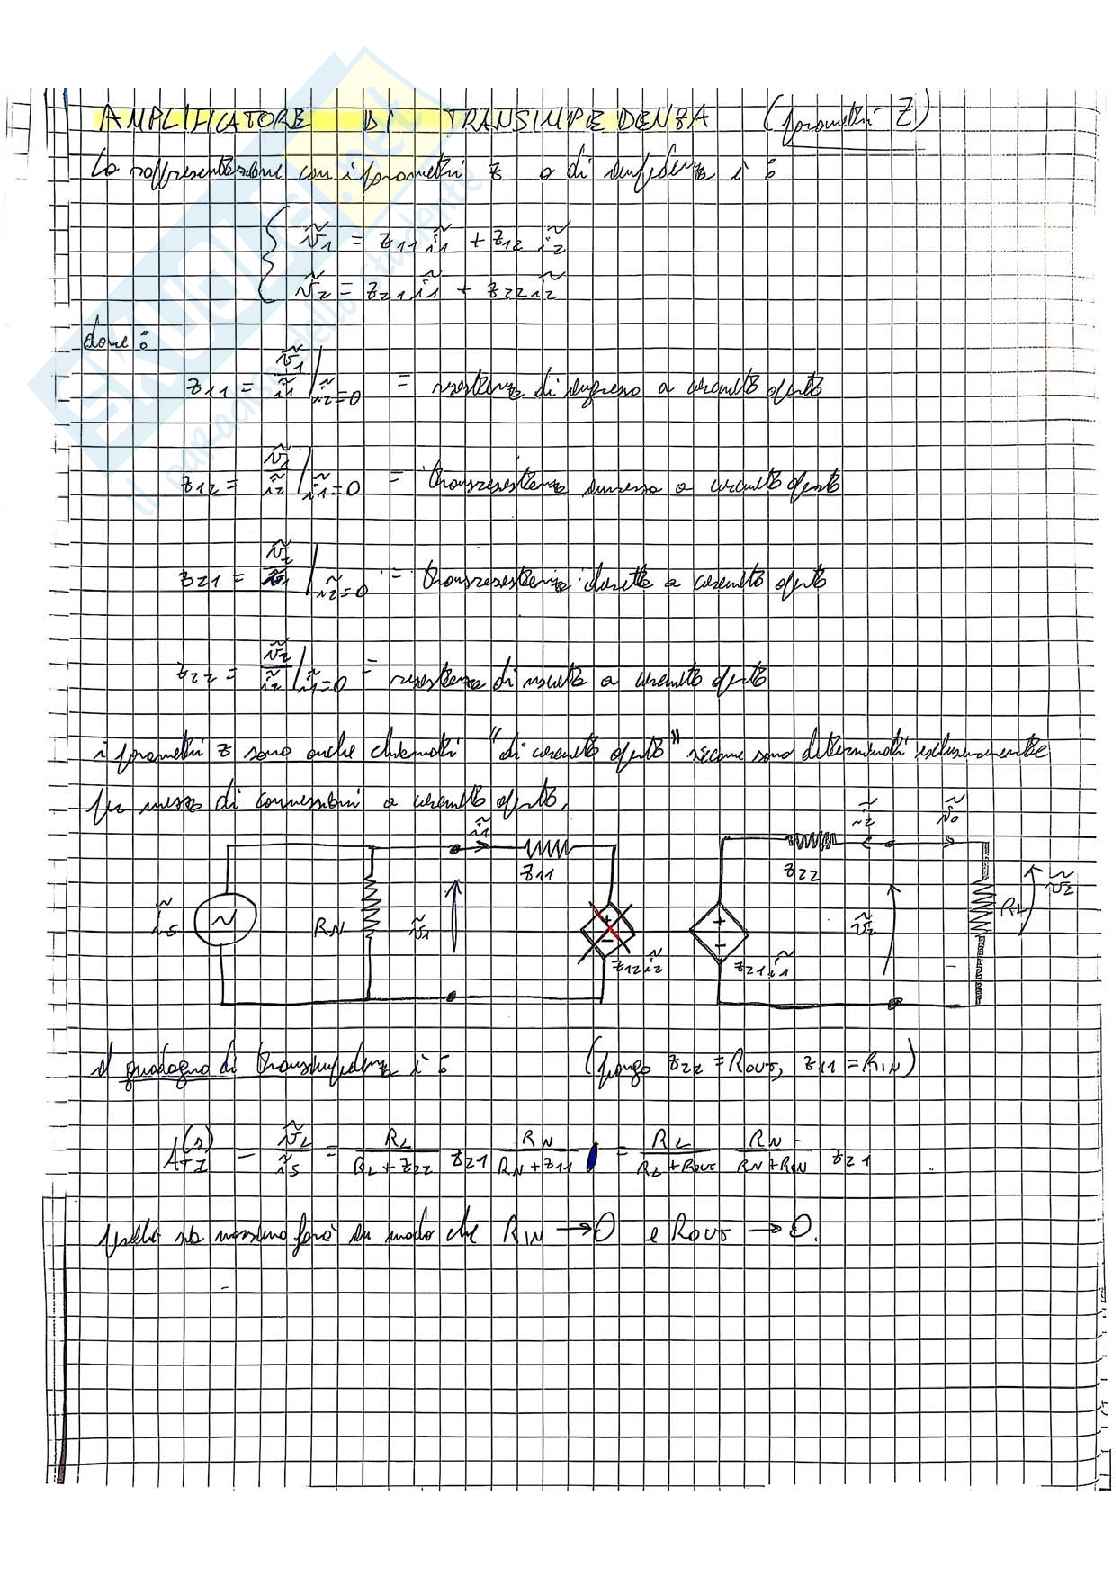 AMPLIFICATORE DI TRANSIMPEDENZA (parametri Z)
La rappresentazione con i parametri z o di impedenza è :
ṽ1 = z11 ĩ1 + z12 ĩ2
ṽ2 = z21 ĩ1 + z22 ĩ2
dove :
z11 = ṽ1/ĩ1 | ĩ2=0 = resistenza di ingresso a circuito aperto
z12 = ṽ1/ĩ2 | ĩ1=0 = transresistenza inversa a circuito aperto
z21 = ṽ2/ĩ1 | ĩ2=0 = transresistenza diretta a circuito aperto
z22 = ṽ2/ĩ2 | ĩ1=0 = resistenza di uscita a circuito aperto
i parametri z sono anche chiamati "di circuito aperto" siccome sono determinati esclusivamente
per mezzo di connessioni a circuito aperto.
ĩ1 z11 z22 ĩ2 ĩo
ĩs RN ṽ1 z12 ĩ2 z21 ĩ1 ṽ2 RL ṽL
il guadagno di transimpedenza è : (pongo z22 = ROUT, z11 = RIN)
ATZ(s) = ṽL/ĩs = RL/(RL + z22) z21 RN/(RN + z11) = RL/(RL + ROUT) RN/(RN + RIN) z21
Quello sia massimo farò in modo che RIN → 0 e ROUT → 0.
SKUOLA.net
il paradiso dello studente